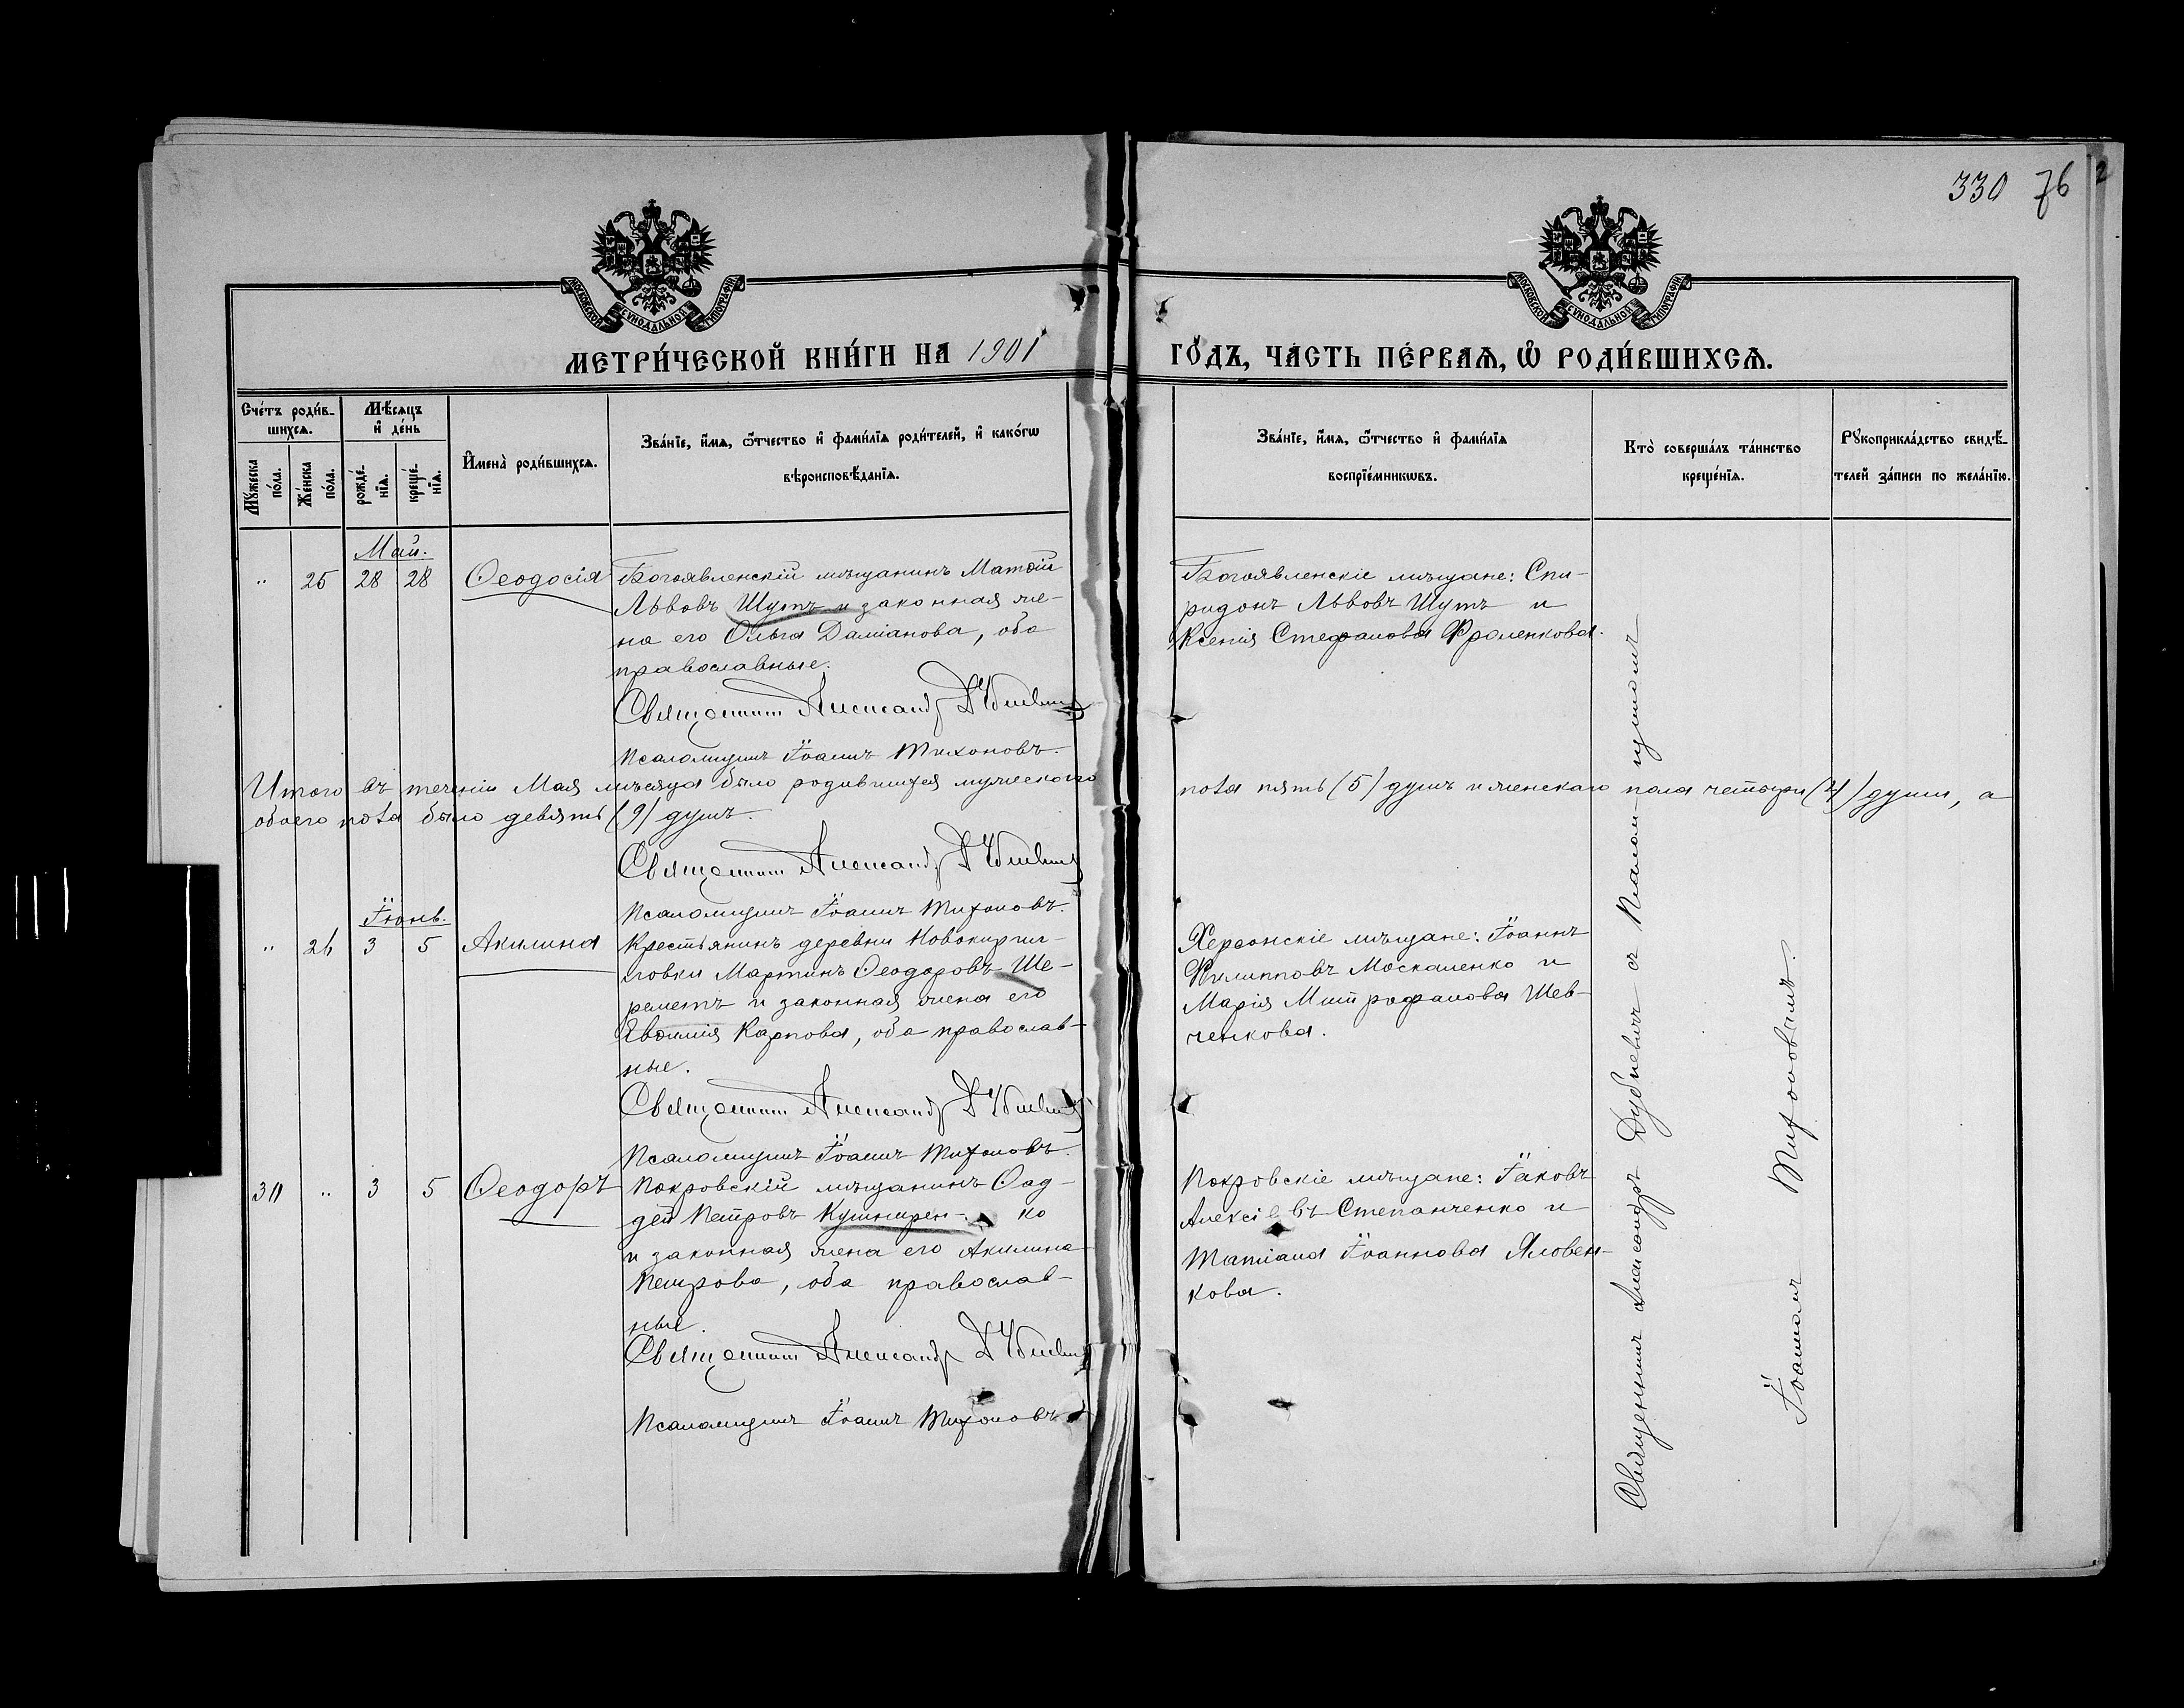 330 76
2
МОСКОВСКОЙ СѴНОДАЛЬНОЙ ТИПОГРАФІИ
МОСКОВСКОЙ СѴНОДАЛЬНОЙ ТИПОГРАФІИ
МЕТРИ́ЧЕСКОЙ КНИ́ГИ НА 1901 ГО́ДЪ, ЧА́СТЬ ПЕ́РВАѦ, Ѡ҆ РОДИ́ВШИХСѦ.
Сче́тъ роди́в-
шихсѧ.
Мꙋ́жеска по́ла.
Же́нска по́ла.
Мѣ́сѧцъ
и҆ де́нь
рожде́-
нїѧ.
креще́-
нїѧ.
И҆мена̀ роди́вшихсѧ.
Зва́нїе, и҆́мѧ, ѻ҆́тчество и҆ фами́лїѧ роди́телей, и҆ како́гѡ
вѣроисповѣ́данїѧ.
Зва́нїе, и҆́мѧ, ѻ҆́тчество и҆ фами́лїѧ
воспрїе́мникѡвъ.
Кто̀ соверша́лъ та́инство
креще́нїѧ.
Рꙋкоприкла́дство свидѣ́-
телей за́писи по жела́нїю.
Май.
" 25 28 28 Ѳеодосія
Богоявленскій мѣщанинъ Матѳій
Львовъ Шутъ и законная же-
на его Ольга Даміанова, оба
православные.
Священникъ Александръ Дубневичъ
Псаломщикъ Іоаннъ Тихоновъ.
Богоявленскіе мѣщане: Спи-
ридонъ Львовъ Шутъ и
Ксенія Стефанова Фроленкова.
Итого въ теченіи Мая мѣсяца было родившихся мужескаго пола пять (5) душъ и женскаго пола четыри (4) души, а
обоего пола было девять (9) душъ.
Священникъ Александръ Дубневичъ
Псаломщикъ Іоаннъ Тихоновъ.
Іюнь.
" 26 3 5 Акилина
Крестьянинъ деревни Новокирги-
зовки Мартинъ Ѳеодоровъ Ше-
реметъ и законная жена его
Евѳимія Карпова, оба православ-
ные.
Священникъ Александръ Дубневичъ
Псаломщикъ Іоаннъ Тихоновъ.
Херсонскіе мѣщане: Іоаннъ
Филипповъ Москаленко и
Марія Митрофанова Шев-
ченкова.
30 " 3 5 Ѳеодоръ
Покровскій мѣщанинъ Ѳад-
дей Петровъ Кушнирен- ко
и законная жена его Акилина
Петрова, оба православ-
ные.
Священникъ Александръ Дубневичъ
Псаломщикъ Іоаннъ Тихоновъ
Покровскіе мѣщане: Іаковъ
Алексіевъ Степанченко и
Татіана Іоаннова Яловен-
кова.
Священникъ Александръ Дубневичъ съ Псаломщикомъ
Іоанномъ Тихоновымъ.